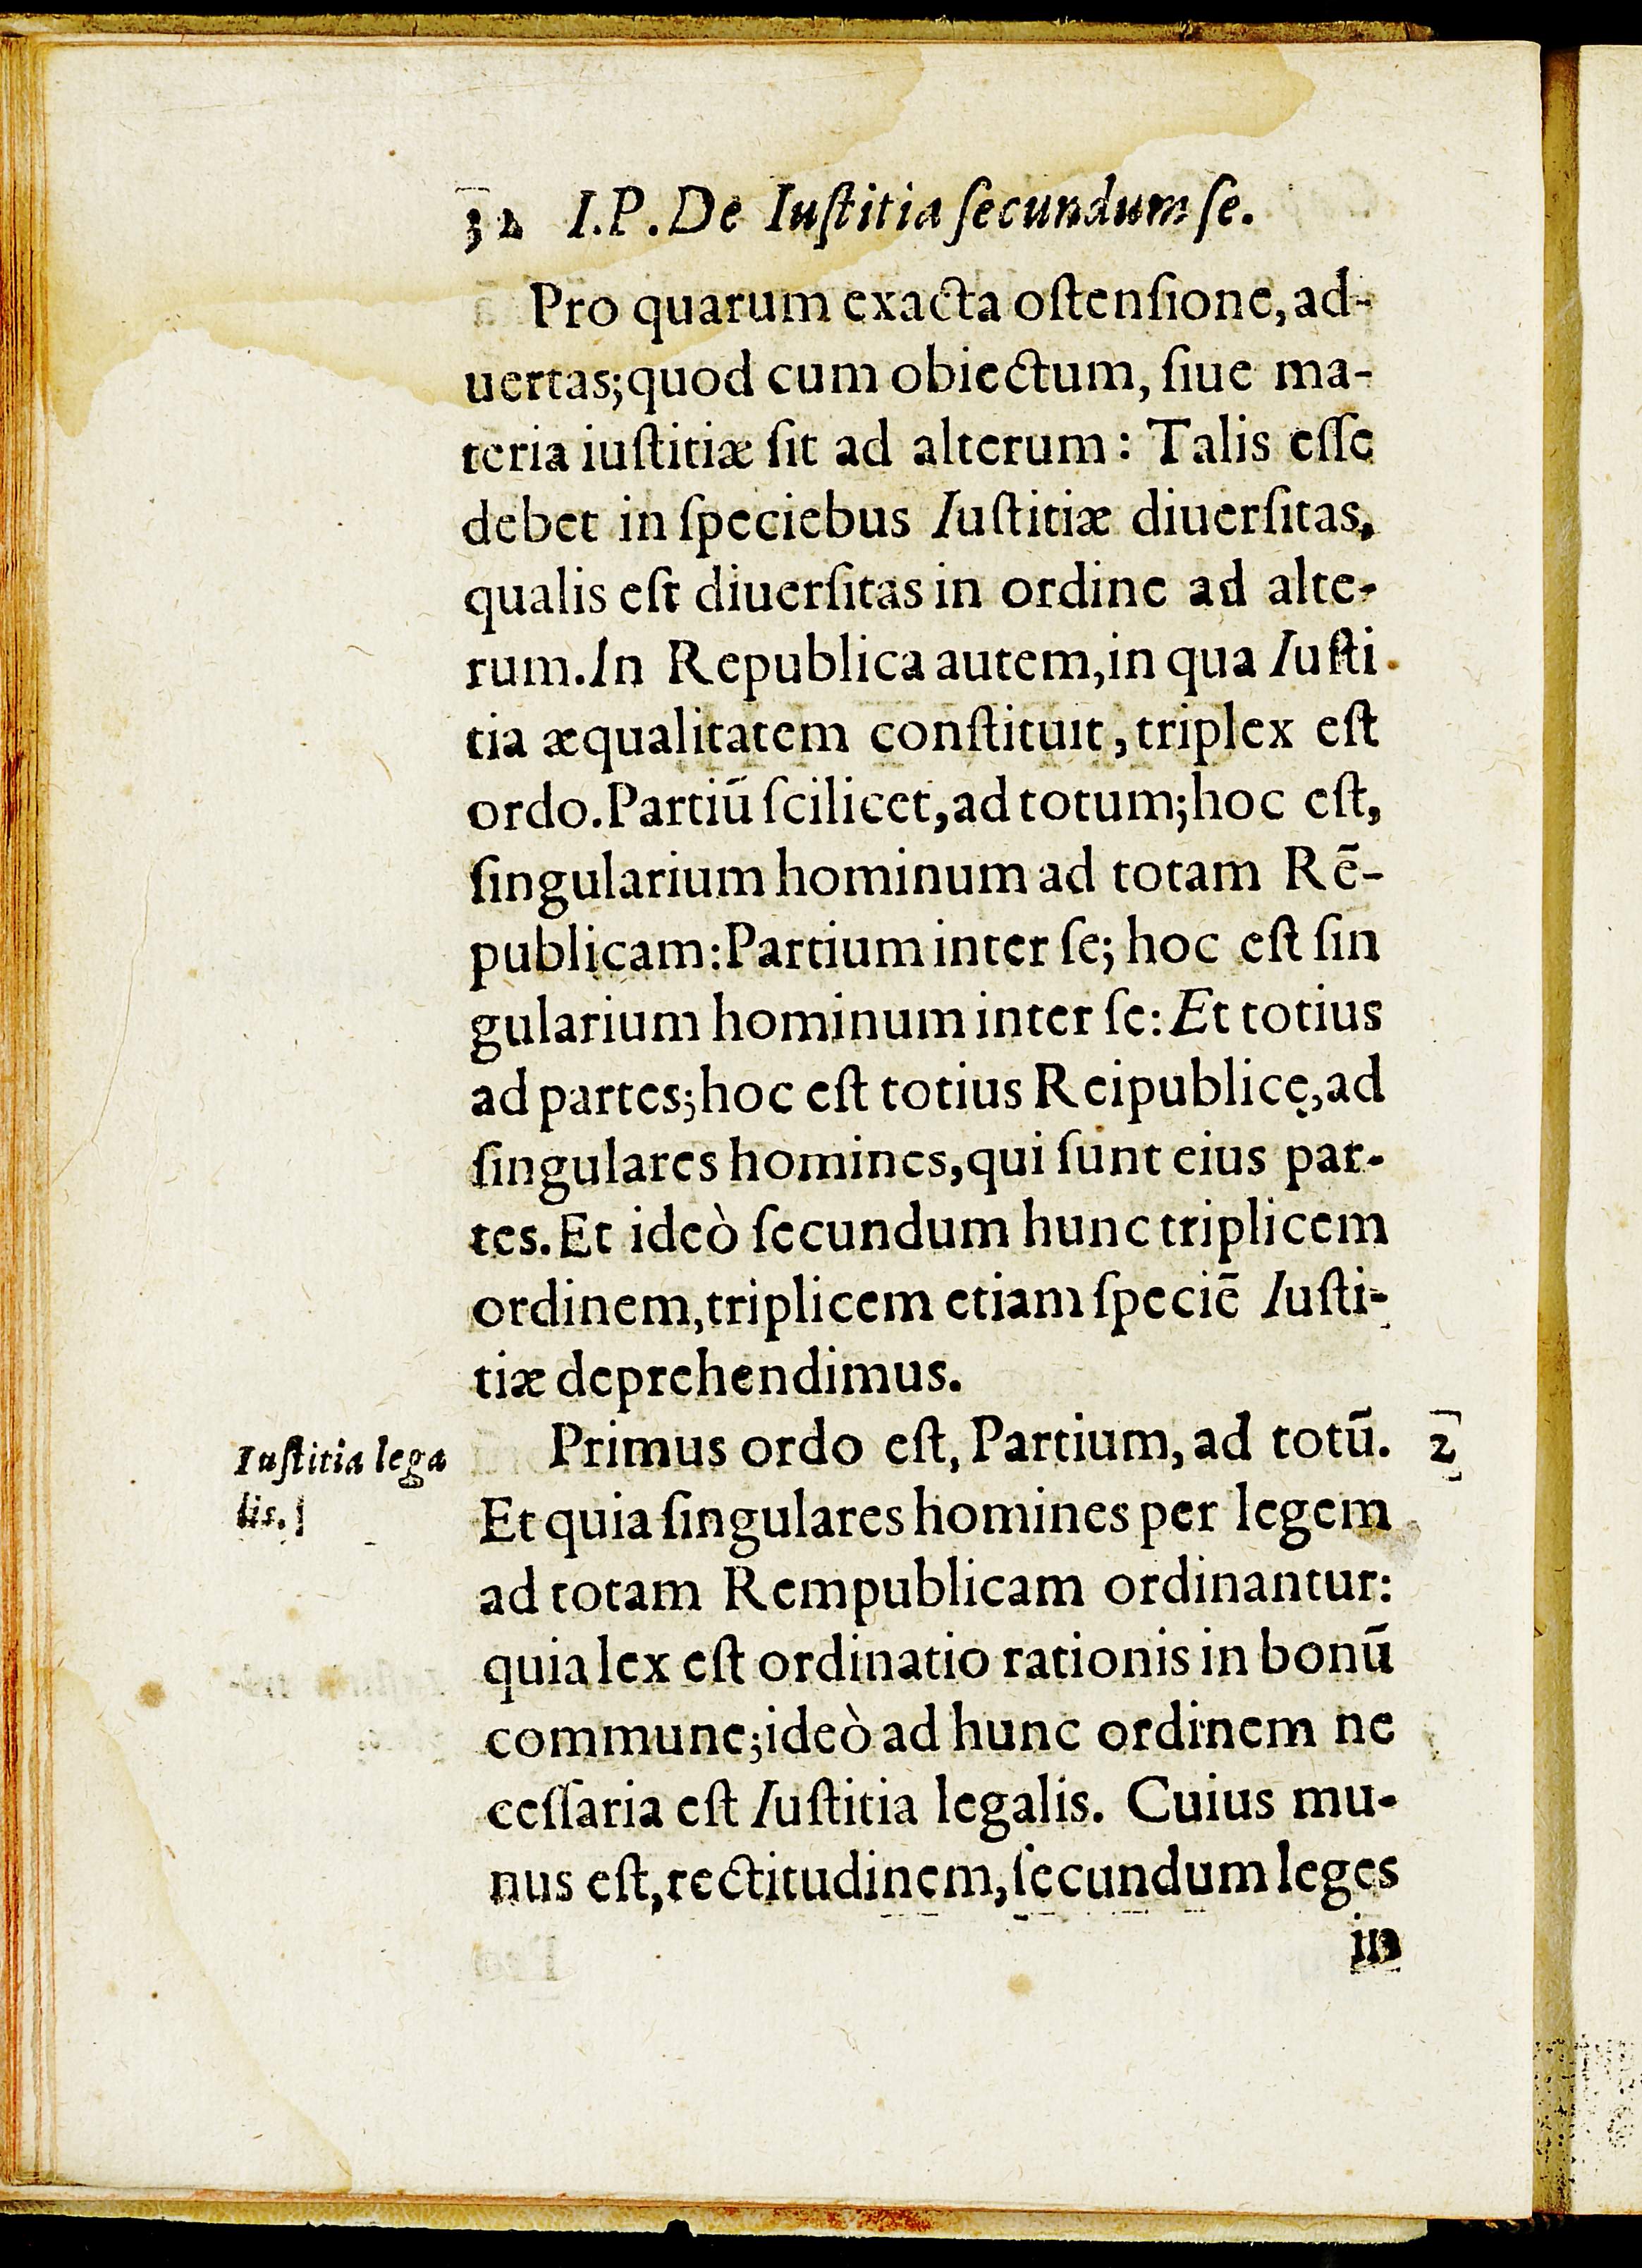 32 I.P. De Iuſtitia ſecundum ſe.
Pro quarum exacta oſtenſione, ad-
uertas; quod cum obiectum, ſiue ma-
teria iuſtitiæ ſit ad alterum: Talis eſſe
debet in ſpeciebus Iuſtitiæ diuerſitas,
qualis eſt diuerſitas in ordine ad alte-
rum. In Republica autem, in qua Iuſti
tia æqualitatem conſtituit, triplex eſt
ordo. Partiū ſcilicet, ad totum; hoc eſt,
ſingularium hominum ad totam Rē-
publicam: Partium inter ſe; hoc eſt ſin
gularium hominum inter ſe: Et totius
ad partes; hoc eſt totius Reipublicę, ad
ſingulares homines, qui ſunt eius par-
tes. Et ideò ſecundum hunc triplicem
ordinem, triplicem etiam ſpeciē Iuſti-
tiæ deprehendimus.
Iuſtitia lega
lis.
Primus ordo eſt, Partium, ad totū. 2
Et quia ſingulares homines per legem
ad totam Rempublicam ordinantur:
quia lex eſt ordinatio rationis in bonū
commune; ideò ad hunc ordinem ne
ceſſaria eſt Iuſtitia legalis. Cuius mu-
nus eſt, rectitudinem, ſecundum leges
in